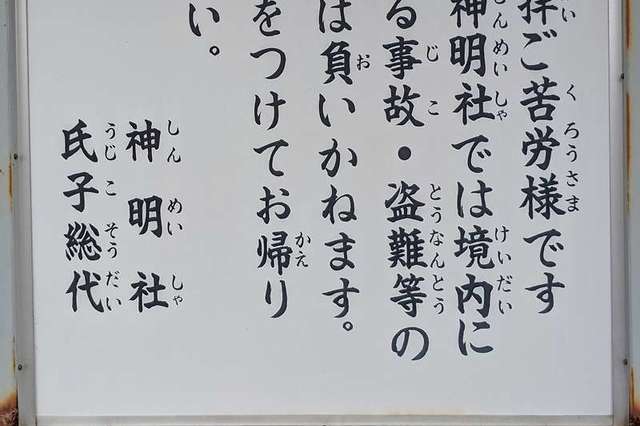 拝ご苦労様です
神明社では境内に
る事故・盗難等の
は負いかねます。
をつけてお帰り
い。
神明社
氏子総代